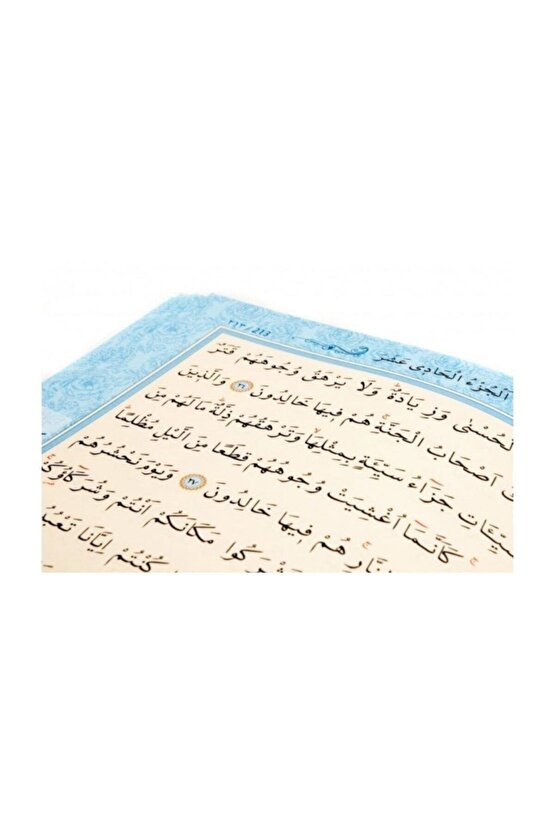 ٢١٣ / 213
الجزء الحادى عشر
الحسنى وزيادة ولا يرهق وجوههم قتر
اصحاب الجنة هم فيها خالدون ٢٦ والذين
جزاء سيئة بمثلها وترهقهم ذلة مالهم من
كأنما اغشيت وجوههم قطعا من الليل مظلما
هم فيها خالدون ٢٧ ويوم نحشرهم
مكانكم انتم وشركاؤكم
كنتم ايانا